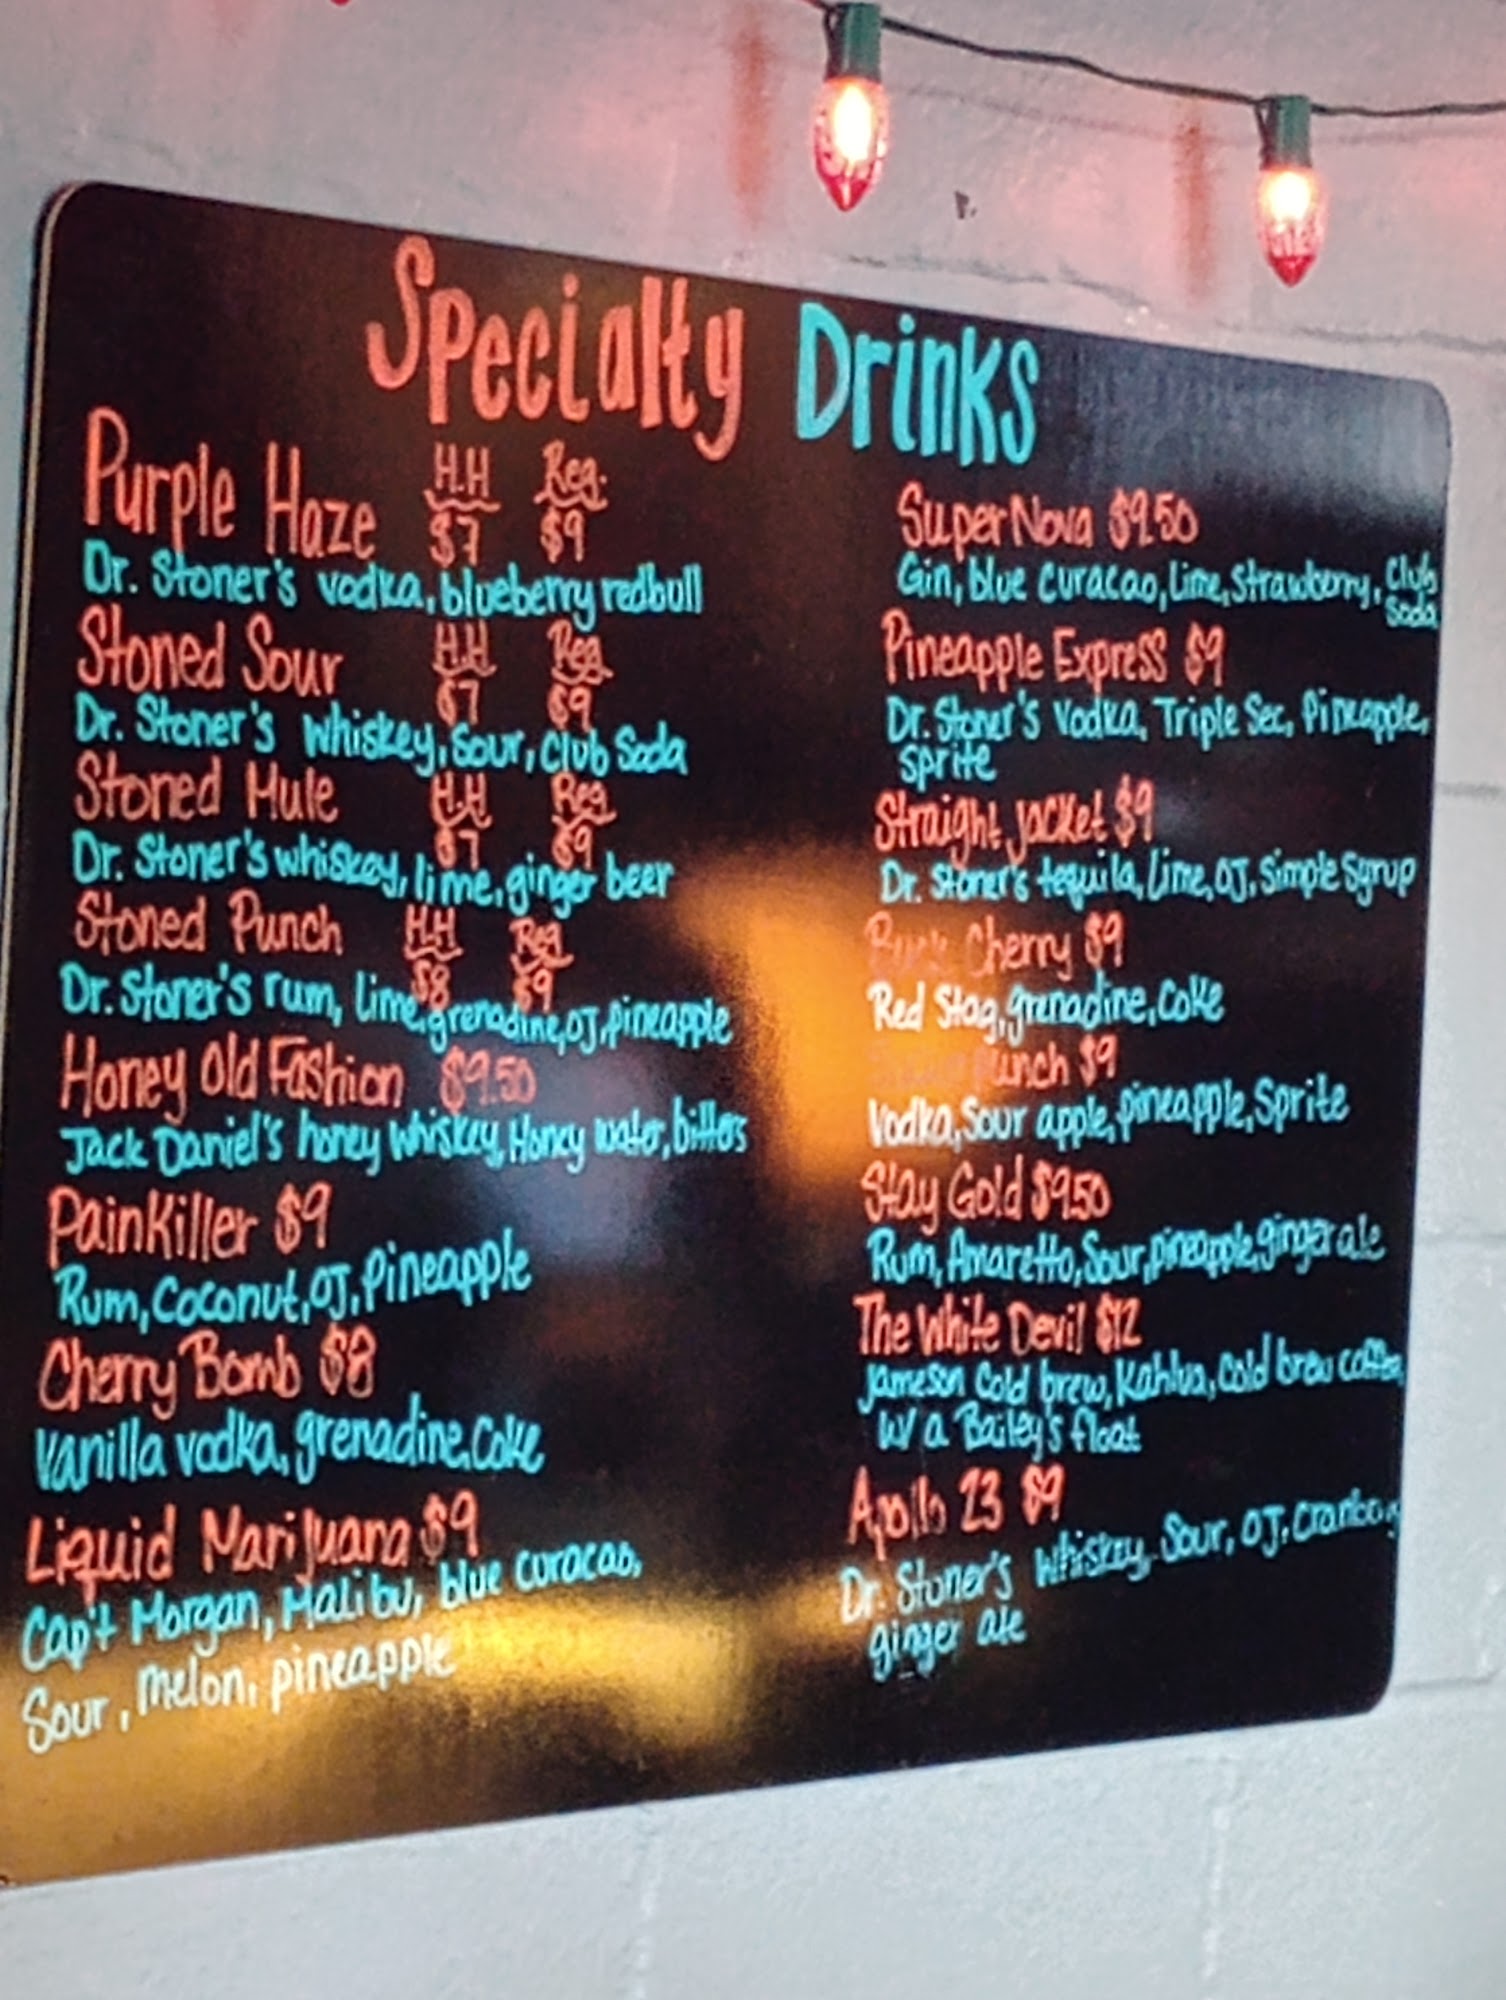 Specialty Drinks
Purple Haze H.H Reg.
$7 $9
Dr. Stoner's vodka, blueberry redbull
Stoned Sour H.H Reg.
$7 $9
Dr. Stoner's whiskey, Sour, Club Soda
Stoned Mule H.H Reg.
$7 $9
Dr. Stoner's whiskey, lime, ginger beer
Stoned Punch H.H Reg.
$8 $9
Dr. Stoner's rum, lime, grenadine, OJ, pineapple
Honey Old Fashion $9.50
Jack Daniel's honey whiskey, Honey water, bitters
Painkiller $9
Rum, Coconut, OJ, Pineapple
Cherry Bomb $8
Vanilla vodka, grenadine, Coke
Liquid Marijuana $9
Cap't Morgan, Malibu, blue curacao,
Sour, melon, pineapple
Super Nova $9.50
Gin, blue curacao, Lime, Strawberry, Club
Soda
Pineapple Express $9
Dr. Stoner's Vodka, Triple Sec, Pineapple,
Sprite
Straight Jacket $9
Dr. Stoner's tequila, Lime, OJ, Simple Syrup
Cherry $9
Red Stag, grenadine, Coke
$9
Vodka, Sour apple, pineapple, Sprite
Stay Gold $9.50
Rum, Amaretto, Sour, pineapple, ginger ale
The White Devil $12
Jameson Cold brew, Kahlua, Cold brew coffee,
w/ a Bailey's float
Apollo 23 $9
Dr. Stoner's Whiskey, Sour, OJ, Cranberry
ginger ale